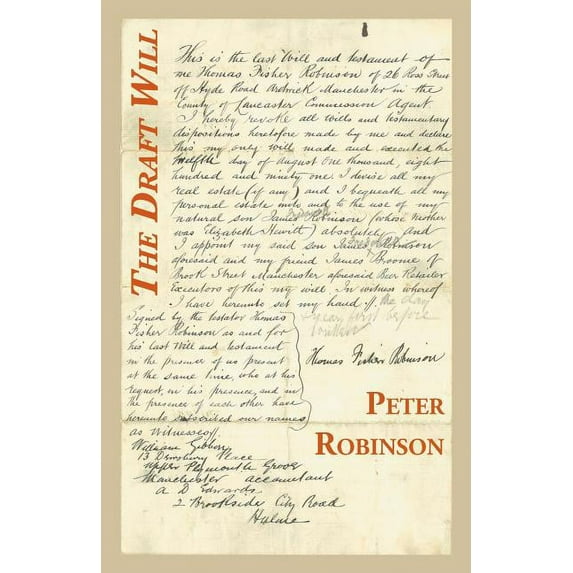 THE DRAFT WILL
This is the last Will and testament of
me Thomas Fisher Robinson of 26 Ross Street
off Hyde Road Ardwick Manchester in the
County of Lancaster Commission Agent.
I hereby revoke all wills and testamentary
dispositions heretofore made by me and declare
this my only will made and executed the
twelfth day of august one thousand, eight
hundred and ninety one I devise all my
real estate (if any) and I bequeath all my
personal estate unto and to the use of my
natural son James Robinson (whose mother
was Elizabeth Hewitt) absolutely and
I appoint my said son James Robinson
aforesaid and my friend James Broome of
Brook Street Manchester aforesaid Beer Retailer
Executors of this my will. In witness whereof
I have hereunto set my hand the day
& year first before
written
Signed by the testator Thomas
Fisher Robinson as and for
his last Will and testament
in the presence of us present
at the same time, who at his
request, in his presence, and in
the presence of each other have
hereunto subscribed our names
as witnesses
Thomas Fisher Robinson
William Gibbons
13 Dewsbury Place
Upper Plymouth Grove
Manchester accountant
A D Edwards
2 Brookside City Road
Hulme
PETER
ROBINSON